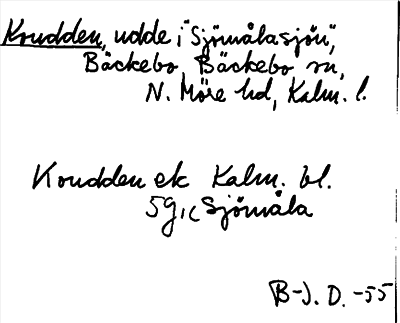 Koudden, udde i "Sjömålasjön",
Bäckebo, Bäckebo sn,
N. Möre hd, Kalm. l.
Koudden ek Kalm. bl.
5g, Sjömåla
B-J. D. -55